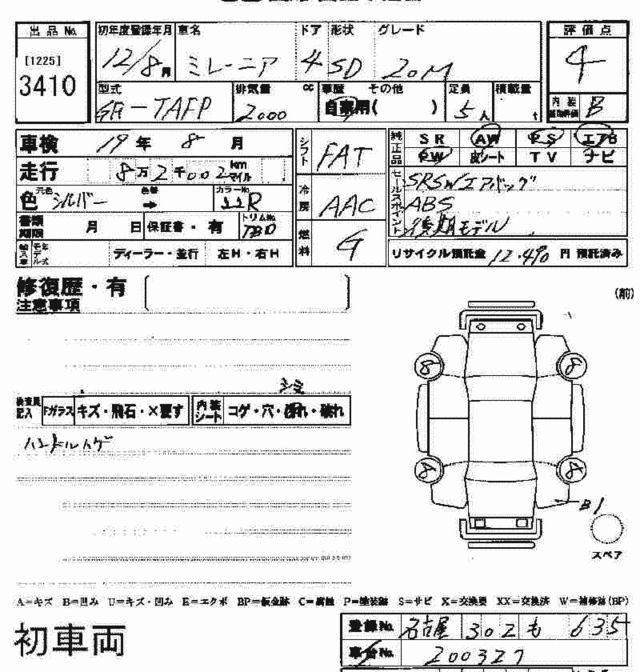 出品No.
[1225]
3410
初年度登録年月 車名 ドア 形状 グレード
12/8月 ミレーニア 4 SD 20M
型式 排気量 cc 車歴 その他 定員 積載量
GA-TAFP 2000 自家用( ) 5人 t
評価点
4
内装
B
車検 19年 8月
走行 8万2千002 km マイル
色 元色 シルバー 色替 → カラーNo. 22R
書類期限 月 日 保証書・有 トリムNo. TBD
ディーラー・並行 左H・右H
シフト FAT
冷房 AAC
燃料 G
純正品 SR AW PS エアB
PW 皮シート TV ナビ
セールスポイント
SRSWエアバッグ
ABS
後期モデル
リサイクル預託金 12.490 円 預託済み
修復歴・有
注意事項
(前)
シミ
検査員記入 Fガラス キズ・飛石・×要す 内装シート コゲ・穴・擦れ・破れ
ハンドルスゲ
8 8
8 8
B1
スペア
A=キズ B=凹み U=キズ・凹み E=エクボ BP=鈑金跡 C=腐蝕 P=塗装跡 S=サビ X=交換要 XX=交換済 W=補修跡(BP)
初車両
登録No. 名古屋 302 も 635
車台No. 200327